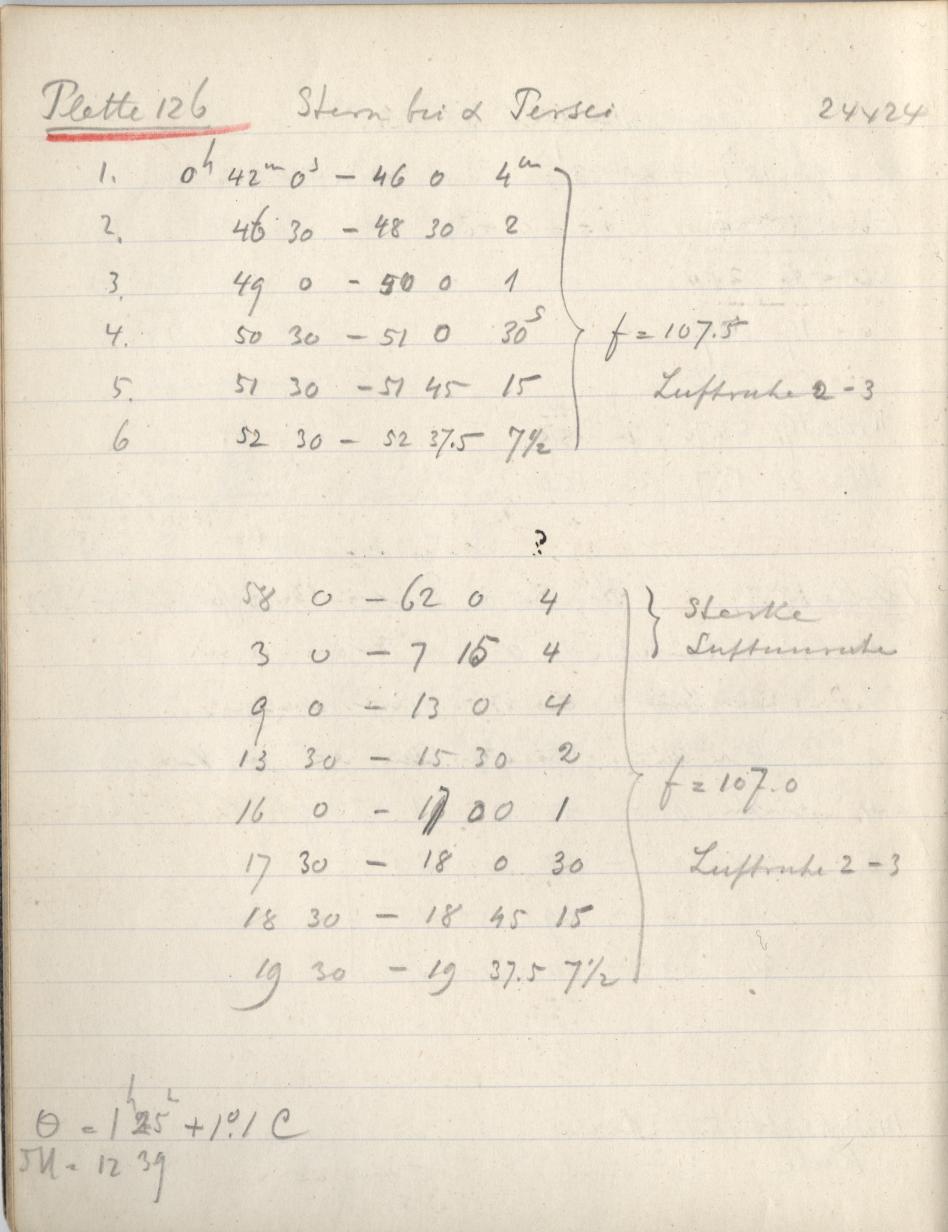 Platte 126 Stern bei α Persei 24×24
1. 0h 42m 0s – 46 0 4m
2. 46 30 – 48 30 2
3. 49 0 – 50 0 1
4. 50 30 – 51 0 30s f = 107.5
5. 51 30 – 51 45 15 Luftruhe 2–3
6 52 30 – 52 37.5 7½
?
58 0 – 62 0 4 Starke
3 0 – 7 15 4 Luftunruhe
9 0 – 13 0 4
13 30 – 15 30 2
16 0 – 17 00 1 f = 107.0
17 30 – 18 0 30 Luftruhe 2–3
18 30 – 18 45 15
19 30 – 19 37.5 7½
θ = 1h 25 +1°.1 C
= 12 39